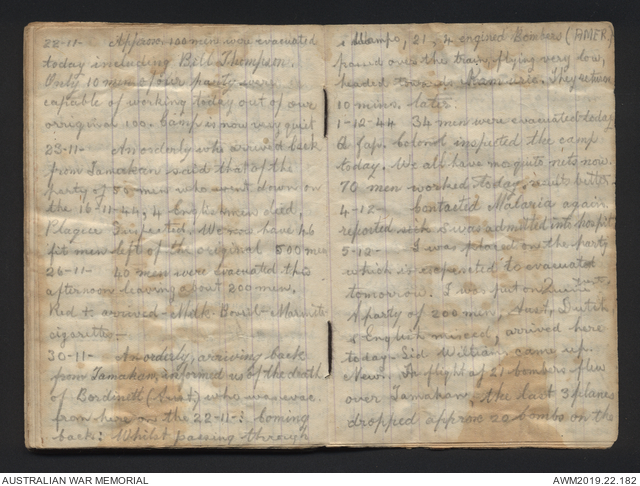 22-11- Approx. 100 men were evacuated
today including Bill Thompson.
Only 10 men of our party were
captable of working today out of our
orriginal 100. Camp is now very quiet
23-11- An orderly who arrived back
from Tamarkan said that of the
party of 50 men who went down on
the 16-11-44, 4 Englishmen died,
Plague suspected. We now have 46
fit men left of the original 500 men
26-11- 40 men were evacuated this
afternoon leaving about 200 men.
Red + arrived - Milk. Bovril - Marmite
cigarettes -
30-11- An orderly, arriving back
from Tamakan, informed us of the death
of (Aust) who was evac.
from here on the 22-11-: Coming
back: Whilst passing through
21, 4 engined Bombers (AMER.)
passed over the train, flying very low,
headed towards They return
10 mins. later.
1-12-44 34 men were evacuated today
A Jap. Colonel inspected the camp
today. We all have mosquito nets now.
70 men worked today,
4-12- Contacted Malaria again.
reported sick & was admitted into hospit.
5-12- I was placed on the party
which is expected to evacuated
tomorrow. I was put on
A party of 200 men, Aust, Dutch
& English mixed, arrived here
today. Sid came up.
News. In flight of 21 bombers flew
over Tamahan, the last 3 planes
dropped approx 20 bombs on the
AUSTRALIAN WAR MEMORIAL
AWM2019.22.182